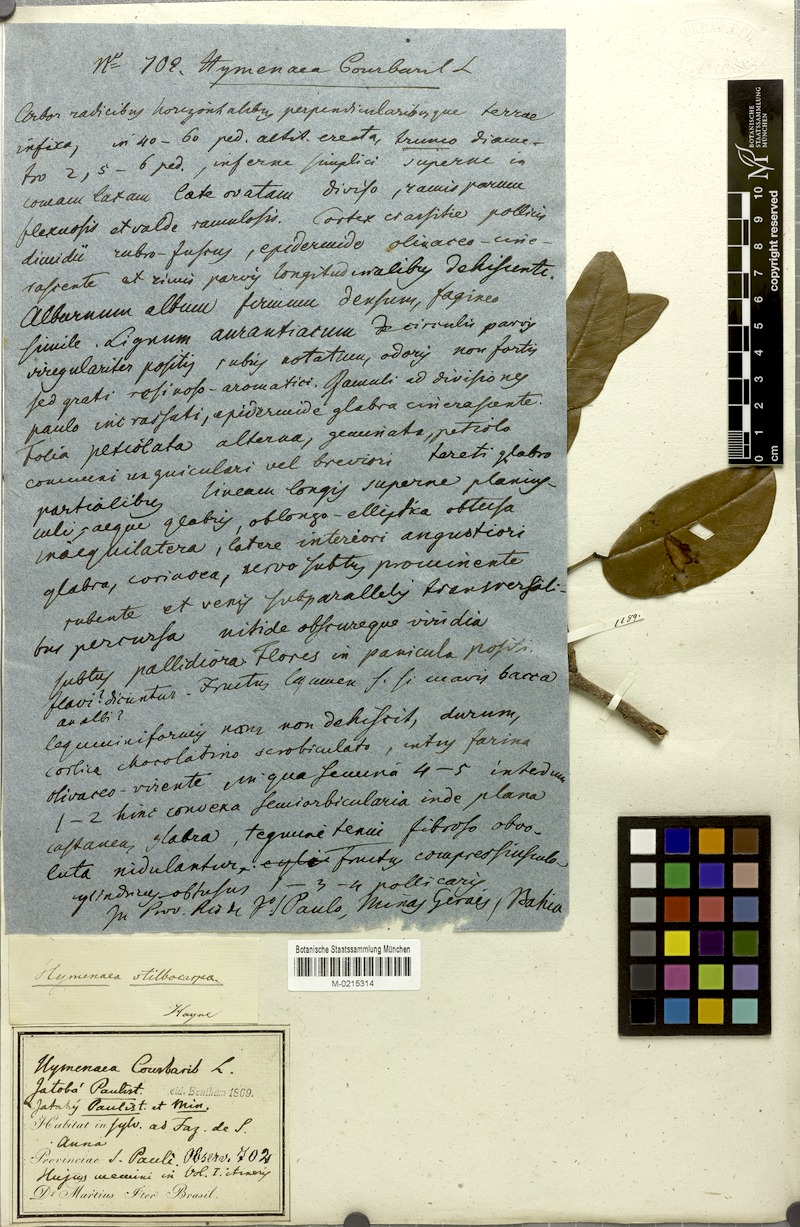 No 702. Hymenaea Courbaril L
Arbor radicibus horizontalibus perpendicularibusque terrae
infixa, in 40 – 60 ped. altit. erecta, trunco diame-
tro 2,5 – 6 ped., inferne simplici superne in
comam laxam late ovatam diviso, ramis parum
flexuosis et valde ramulosis. Cortex crassitie pollicis
dimidii rubro-fuscus, epidermide olivaceo-cine-
rascente et rimis parvis longitudinalibus dehiscente.
Alburnum album firmum densum, fagineo
simile. Lignum aurantiacum circulis parvis
irregulariter positis rubris notatum, odoris non fortis
sed grati resinoso-aromatici. Ramuli ad divisiones
paulo incrassati, epidermide glabra cinerascente.
Folia petiolata alterna, geminata, petiolo
communi unguiculari vel breviori tereti glabro
partialibus lineam longis superne planius-
culis, aeque glabris, oblongo-elliptica obtusa
inaequilatera, latere interiori angustiori
glabra, coriacea, nervo subtus prominente
rubente et venis subparallelis transversali-
bus percursa nitide obscureque viridia
subtus pallidiora. Flores in panicula positi.
flavi? dicuntur. Fructus legumen s. si mavis bacca
an albi?
leguminiformis nam non dehiscit, durum,
cortice chocolatino scrobiculato, intus farina
olivaceo-virente in qua semina 4 – 5 interdum
1 – 2 hinc convexa semiorbicularia inde plana
castanea, glabra, tegmine tenui fibroso obvo-
luta nidulantur. Fructus compressiusculo
cylindricus obtusus 1 – 3 – 4 pollicaris
In Prov. Rio de Jo, S Paulo, Minas Geraes, Bahia
1189.
BOTANISCHE
STAATSSAMMLUNG
MÜNCHEN
copyright reserved
0 1 2 3 4 5 6 7 8 9 10
cm
Botanische Staatssammlung München
M-0215314
Hymenaea stilbocarpa
Hayne
Hymenaea Courbaril L.
Jatobá Paulist.
vid. Bentham 1869.
Jatahÿ Paulist. et Min.
Habitat in sylv. ad Faz. de S.
Anna
Provinciae S. Pauli. Observ. 702
Hujus memini in Vol. I. itineris
Dr Martius Iter Brasil.